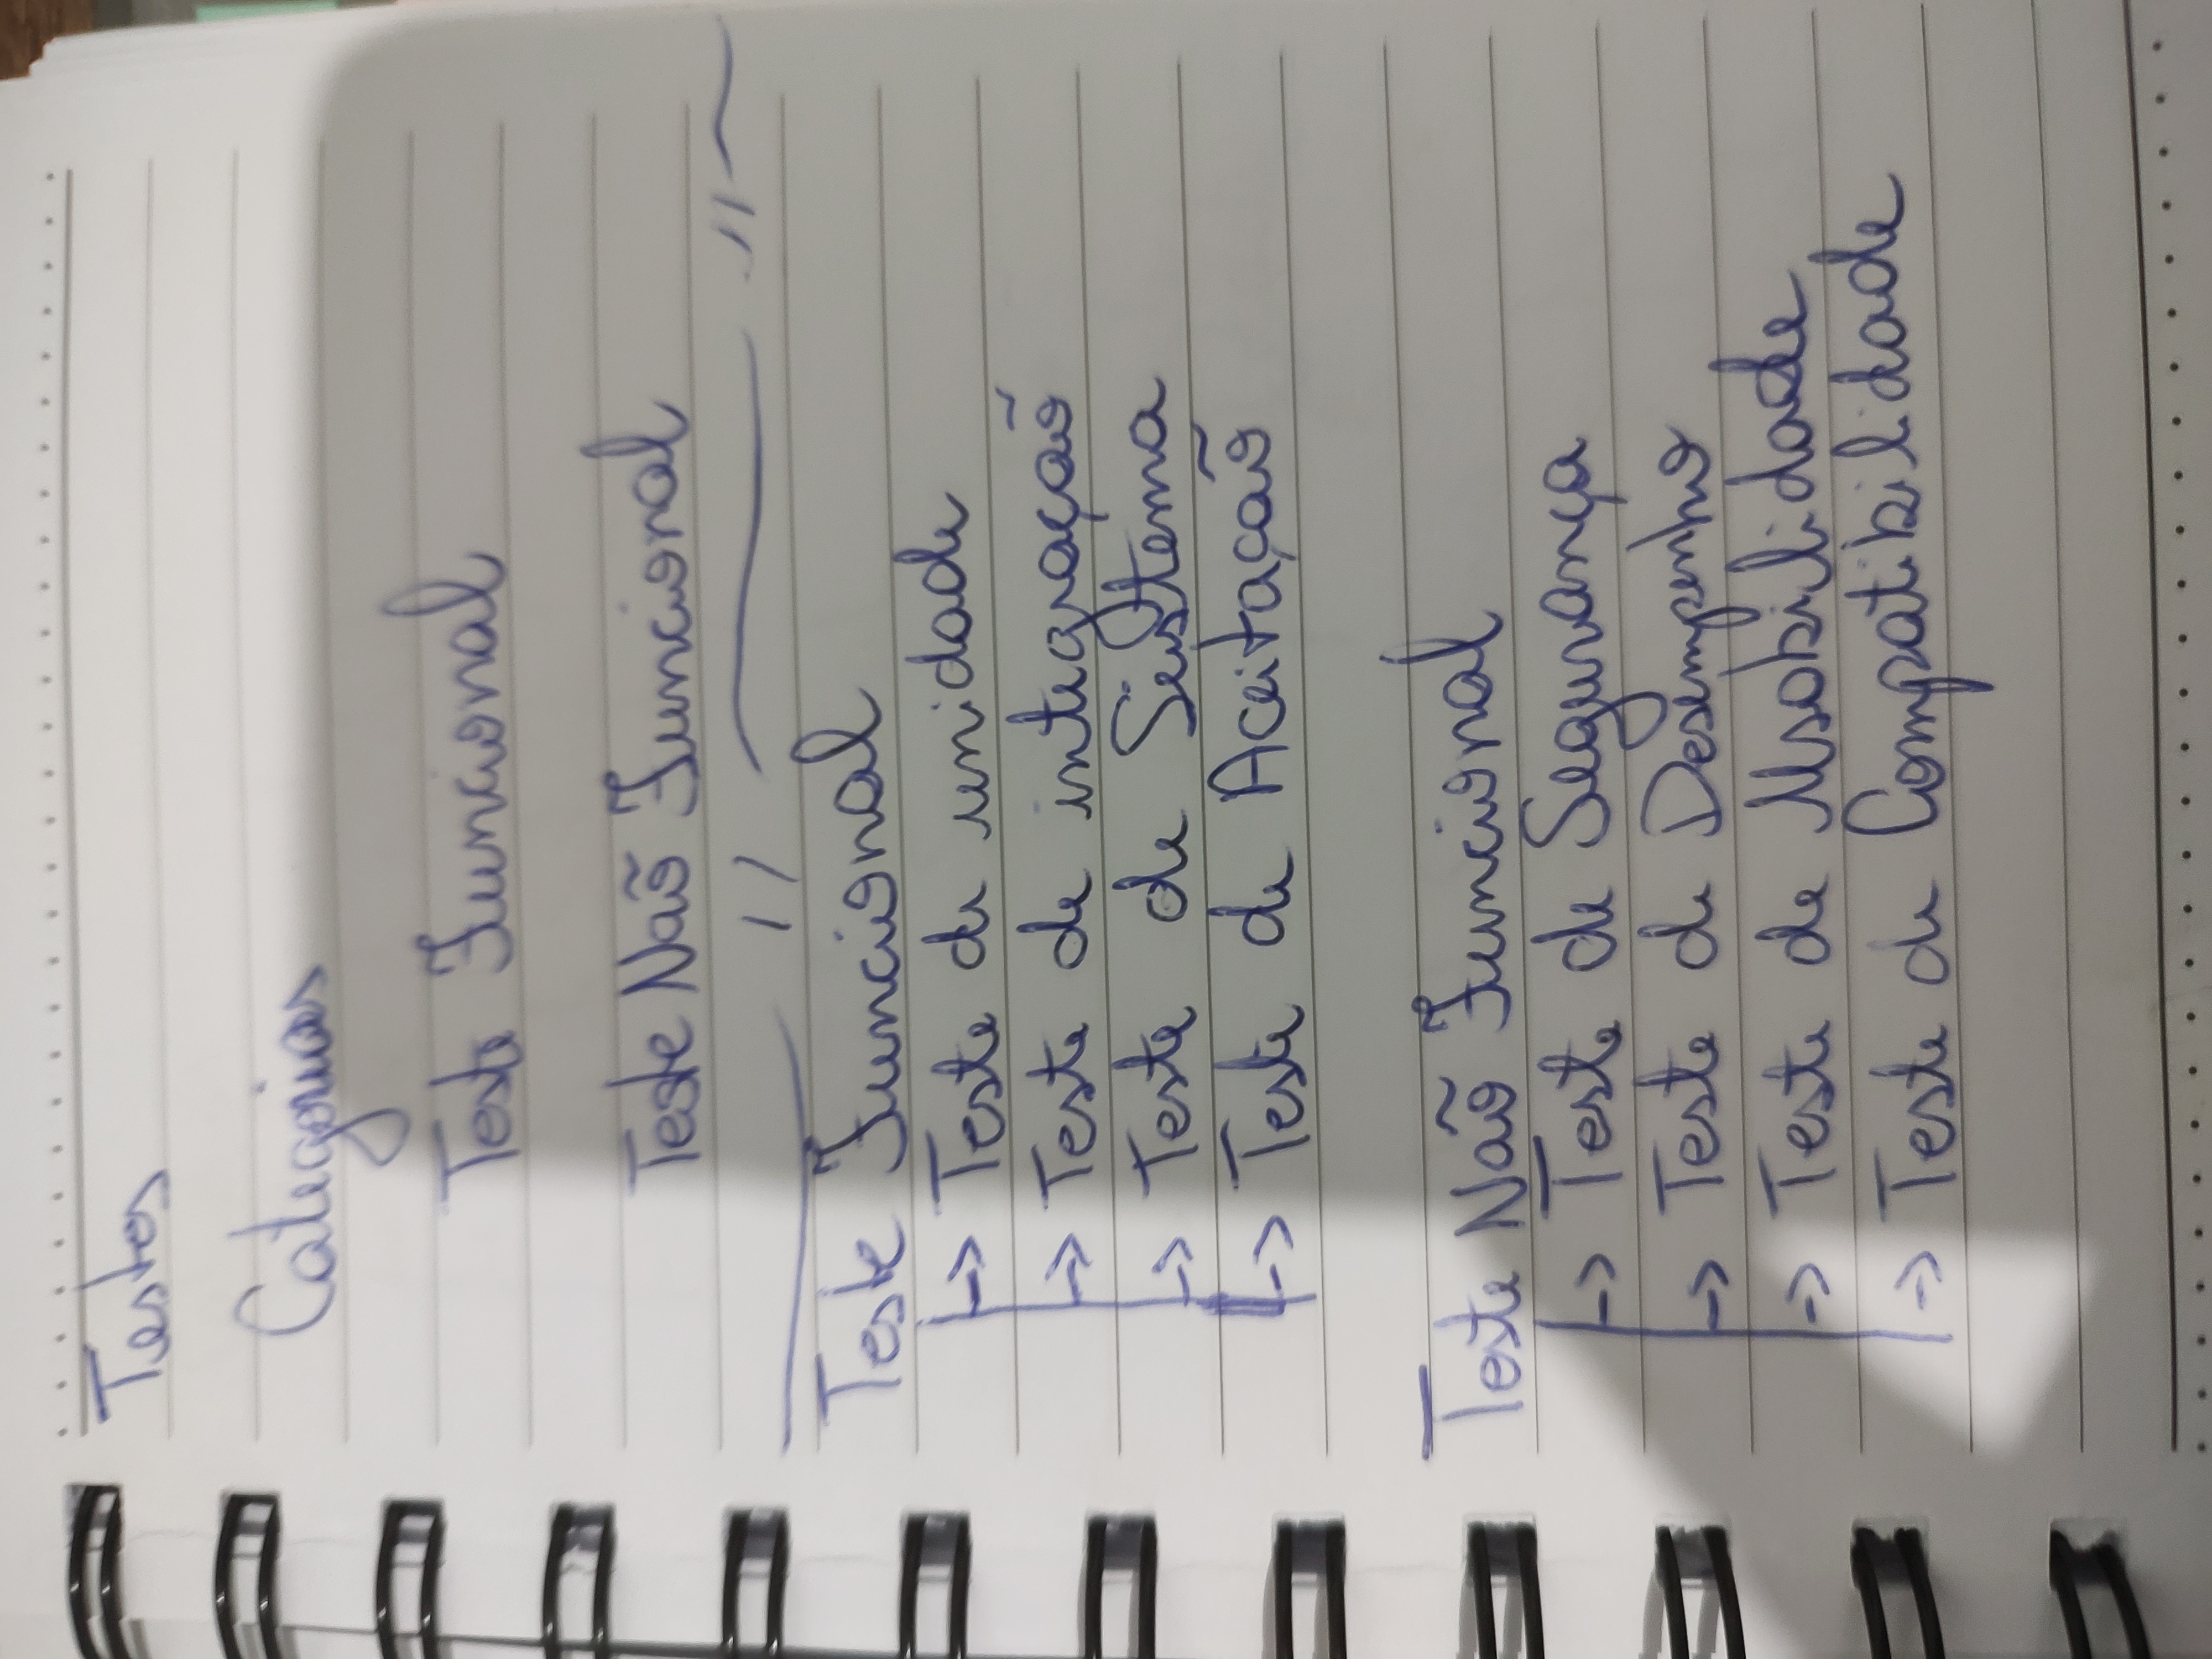 Testes
Categorias
Teste Funcional
Teste Não Funcional
Teste Funcional
-> Teste de unidade
-> Teste de integração
-> Teste de Sistema
-> Teste de Aceitação
Teste Não Funcional
-> Teste de Segurança
-> Teste de Desempenho
-> Teste de Usabilidade
-> Teste de Compatibilidade